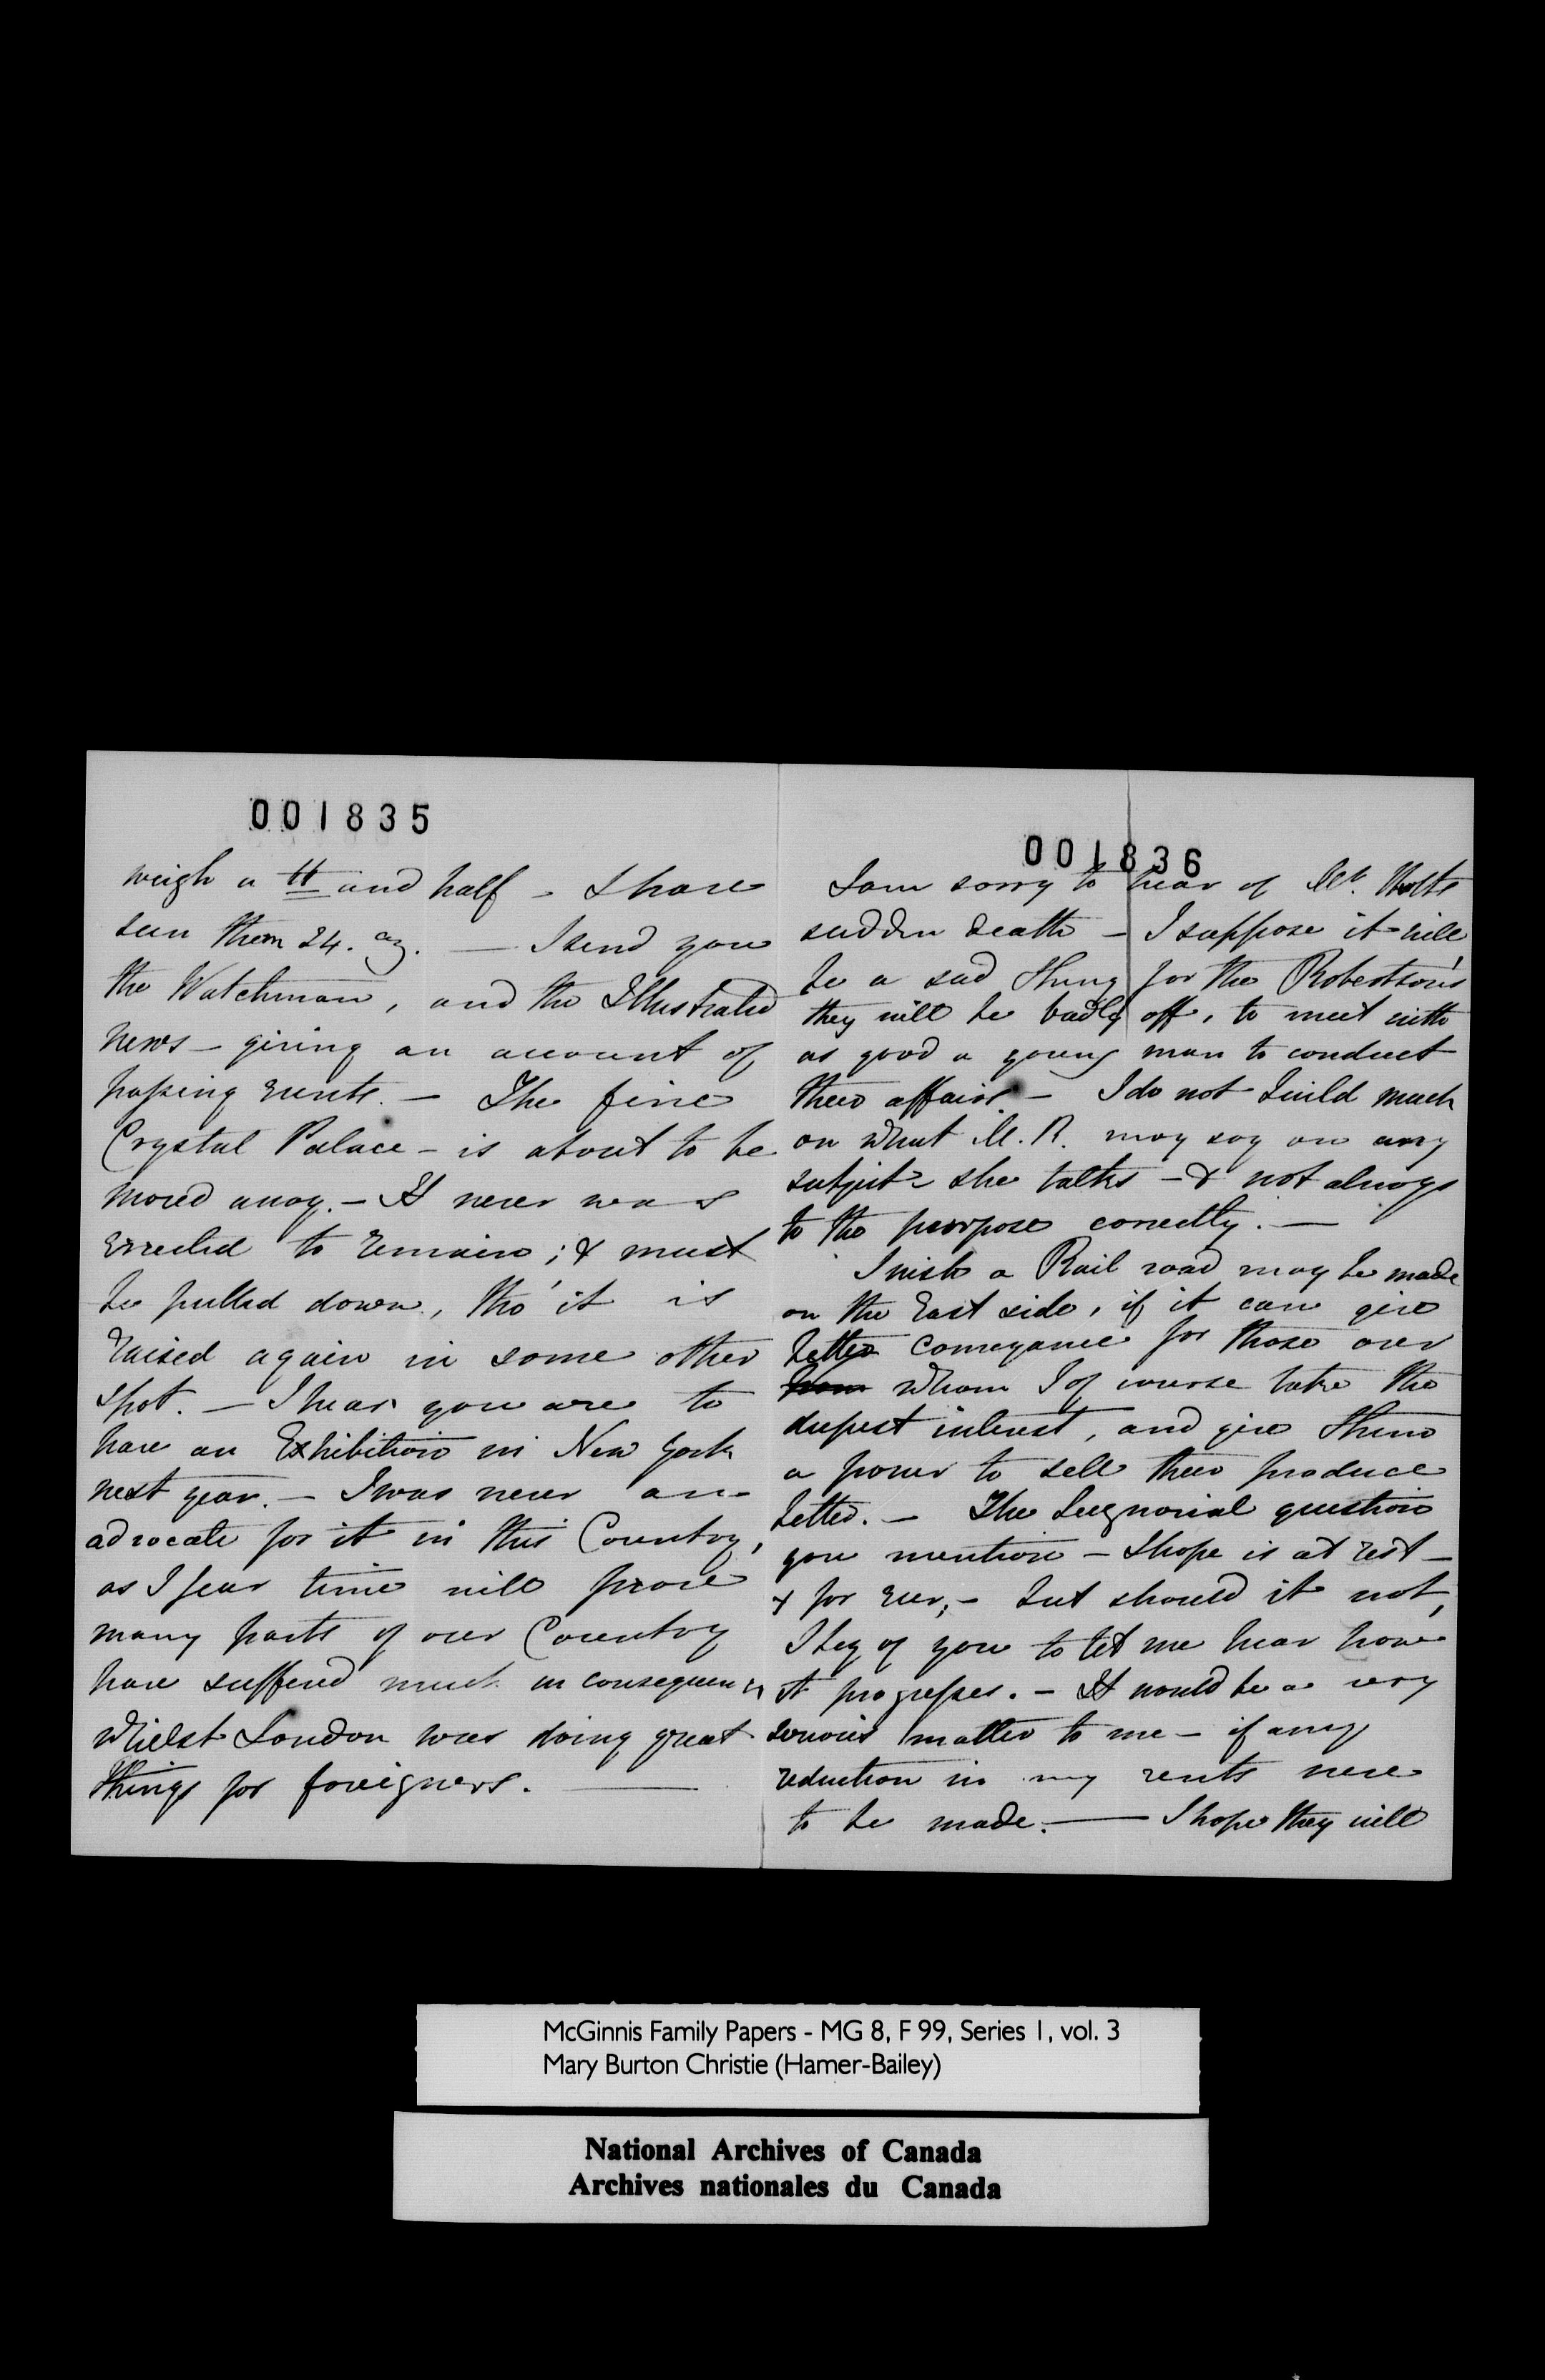 001835
weigh a lb and half - I have
seen them 24. oz. — I send you
the Watchman, and the Illustrated
news - giving an account of
passing events. - The fine
Crystal Palace - is about to be
moved away. - It never was
errected to remain; & must
be pulled down, tho' it is
raised again in some other
spot. - I hear you are to
have an Exhibition in New York
next year. - I was never an
advocate for it in this Country,
as I fear time will prove
many parts of our Country
have suffered much in consequence
whilst London was doing great
things for foreigners. —
001836
I am sorry to hear of Mr.
sudden death - I suppose it will
be a sad thing for the Robertson's
they will be badly off, to meet with
as good a young man to conduct
their affairs. - I do not build much
on what M. R. may say on any
subject - she talks - & not always
to the purpose correctly. —
I wish a Rail road may be made
on the East side, if it can give
better conveyance for those over
whom I of course take the
deepest interest, and give them
a power to sell their produce
better. - The Seignorial question
you mention - I hope is at rest -
& for ever; - but should it not,
I beg of you to let me hear how
it progresses. - It would be a very
serious matter to me - if any
reduction in my rents were
to be made. — I hope they will
McGinnis Family Papers - MG 8, F 99, Series 1, vol. 3
Mary Burton Christie (Hamer-Bailey)
National Archives of Canada
Archives nationales du Canada